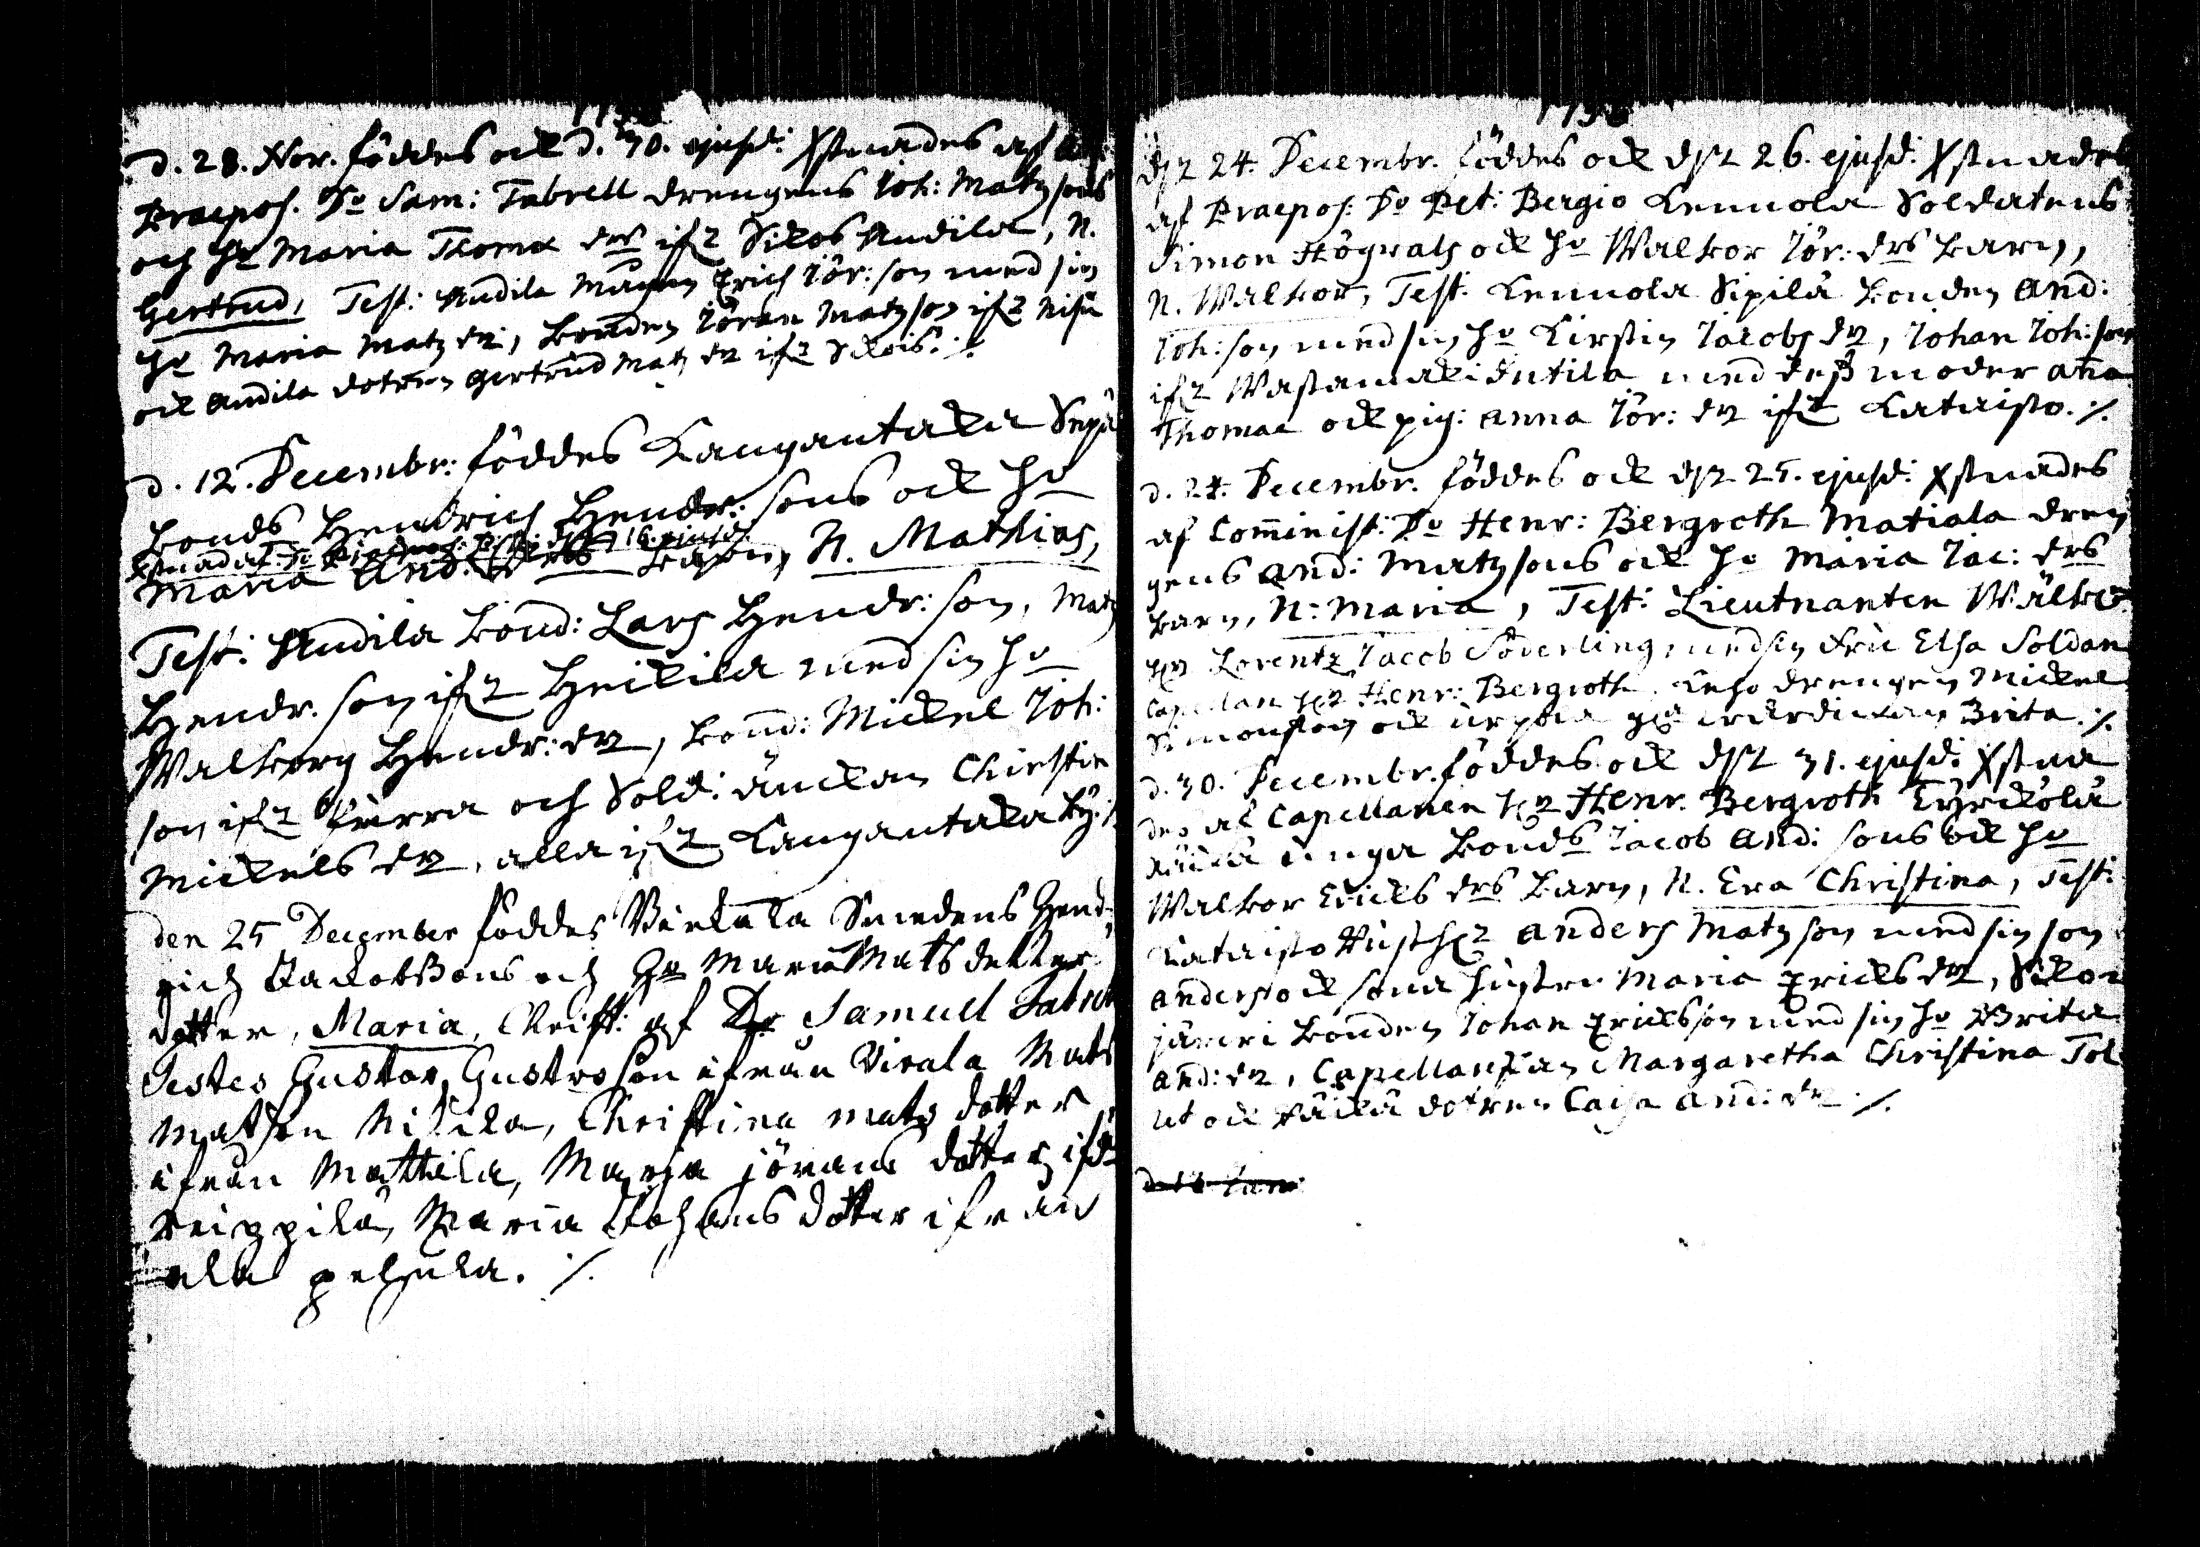 d. 28. Nov. föddes och d. 30. ejusd: Xstnades af
Praepos. Do Sam: Fabrell drengens Joh: Matzsons
och ho Maria Thomæ drs ifr Sikos Audila, N.
Gertrud, Test: Audila Mågen Erich Jör: son med sin
ho Maria Matz dr, bonden Jöran Matzson ifr
och Audila dotren Gertrud Matz dr ifr Skois. ./.
d. 12. Decembr: föddes Kangantaka
bonds Hendrich Hendr: sons och ho
16. ejusd:
Maria And: drs barn, N. Mathias,
Test: Audila bond: Lars Hendr: son, Matz
Hendr. son ifr Heikila med sin ho
Walborg Hendr: dr, bond: Mickel Joh:
son ifr och Sold: änckan Chirstin
Mickels dr, alla ifr Kangantaka by. ./.
den 25 December föddes Smedens Hend-
rich Jackobßons och Ho Maria Mats dotter
dotter, Maria, Christ: af Do Samuel Fabrell
Testes Gustav Gustvson ifrån Virala Mats
Matson Nikila, Christina mats dotter
ifrån Mattila, Marja jörans dotter ifr
Maria Johans dotter ifrån
ala ./.
dr 24. Decembr. föddes och dr 26. ejusd: Xstnades
af Praepos: Do Pet: Bergio Lennola Soldatens
Simon Högvals och ho Walbor Jör: drs barn,
N. Walbor, Test. Lennola Sipilä bonden And:
Joh: son med sin ho Kirstin Jacobs dr, Johan Joh: son
ifr med deß moder
Thomae och pig: Anna Jör: dr ifr Kataisto. ./.
d. 24. Decembr. föddes och dr 25. ejusd: Xstnades
af Comminist: Do Henr: Bergroth Matiala dren
gens And: Matzsons och ho Maria Jac: drs
barn, N: Maria, Test: Lieutnanten Wälb:
Hr Lorentz Jacob Söderling, med sin fru Elsa Soldan
Capellan Hr Henr: Bergroth, drengen Mickel
Simonson och Brita ./.
d. 30. Decembr. föddes och dr 31. ejusd: Xstna
des af Capellanen Hr Henr. Bergroth Tyrckölä
unga bonds Jacob And: sons och ho
Walbor Ericks drs barn, N. Eva Christina, Test:
Kataisto Anders Matzson med sin son
Anders och sona hustru Maria Ericks dr,
bonden Johan Erickson med sin ho Brita
And: dr, Margaretha Christina Tol
let och dotren Caisa And: dr ./.